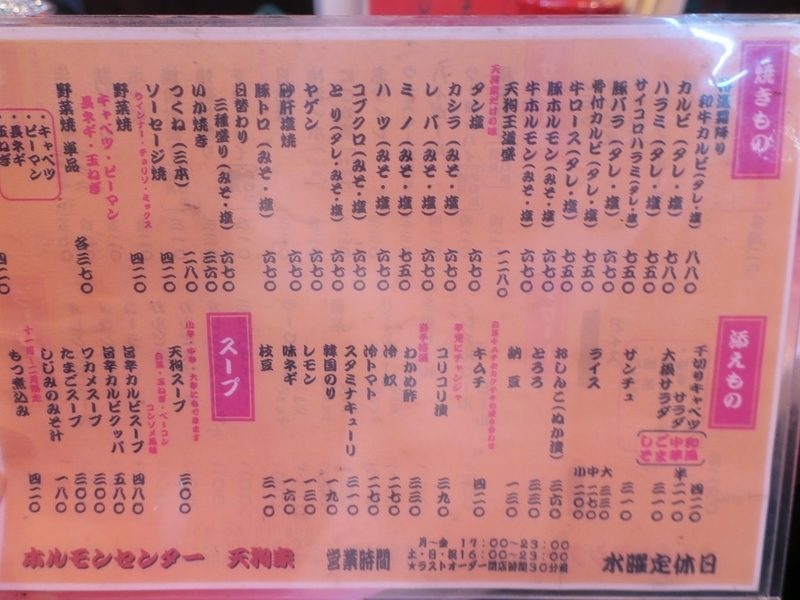 焼きもの
和牛カルビ(タレ・塩) 八八〇
カルビ(タレ・塩) 七八〇
ハラミ(タレ・塩) 七五〇
サイコロハラミ(タレ・塩) 七五〇
豚バラ(タレ・塩) 六七〇
骨付カルビ(タレ・塩) 七五〇
牛ロース(タレ・塩) 七五〇
豚ホルモン(みそ・塩) 六七〇
牛ホルモン(みそ・塩) 六七〇
天狗王道盛 一二八〇
天狗家だけの味
タン塩 六七〇
カシラ(みそ・塩) 六七〇
レバ(みそ・塩) 六七〇
ミノ(みそ・塩) 七五〇
ハツ(みそ・塩) 六七〇
コブクロ(みそ・塩) 六七〇
とり(タレ・みそ・塩) 六七〇
ヤゲン 六七〇
砂肝塩焼 六七〇
豚トロ(みそ・塩) 六七〇
日替わり
三種盛り(みそ・塩) 六七〇
いか焼き 三六〇
つくね(三本) 二八〇
ソーセージ焼 四二〇
ウインナー・チョリソ・ミックス
野菜焼 四二〇
キャベツ・ピーマン
長ネギ・玉ねぎ
野菜焼 単品 各三七〇
キャベツ
ピーマン
長ネギ
玉ねぎ
四二〇
添えもの
千切りキャベツ
サラダ 四二〇
大根サラダ 半二一〇
和風
中華
ごま
しそ
三一〇
サンチュ 三一〇
ライス
大 三三〇
中 二七〇
小 二〇〇
おしんこ(ぬか漬) 三六〇
とろろ 三三〇
納豆 一三〇
キムチ 四二〇
コリコリ漬 三九〇
わかめ酢 三三〇
冷奴 二七〇
冷トマト 二七〇
スタミナキューリ 三一〇
韓国のり 一九〇
レモン 一三〇
味ネギ 一六〇
枝豆 三一〇
スープ
天狗スープ 三〇〇
白菜・玉ねぎ・ベーコン
コンソメ風味
旨辛カルビスープ 四八〇
旨辛カルビクッパ 五八〇
ワカメスープ 三〇〇
たまごスープ 三〇〇
しじみのみそ汁 一八〇
もつ煮込み 四二〇
ホルモンセンター 天狗家 営業時間
月〜金 17:00〜23:00
土・日・祝16:00〜23:00
★ラストオーダー閉店時間30分前
水曜定休日